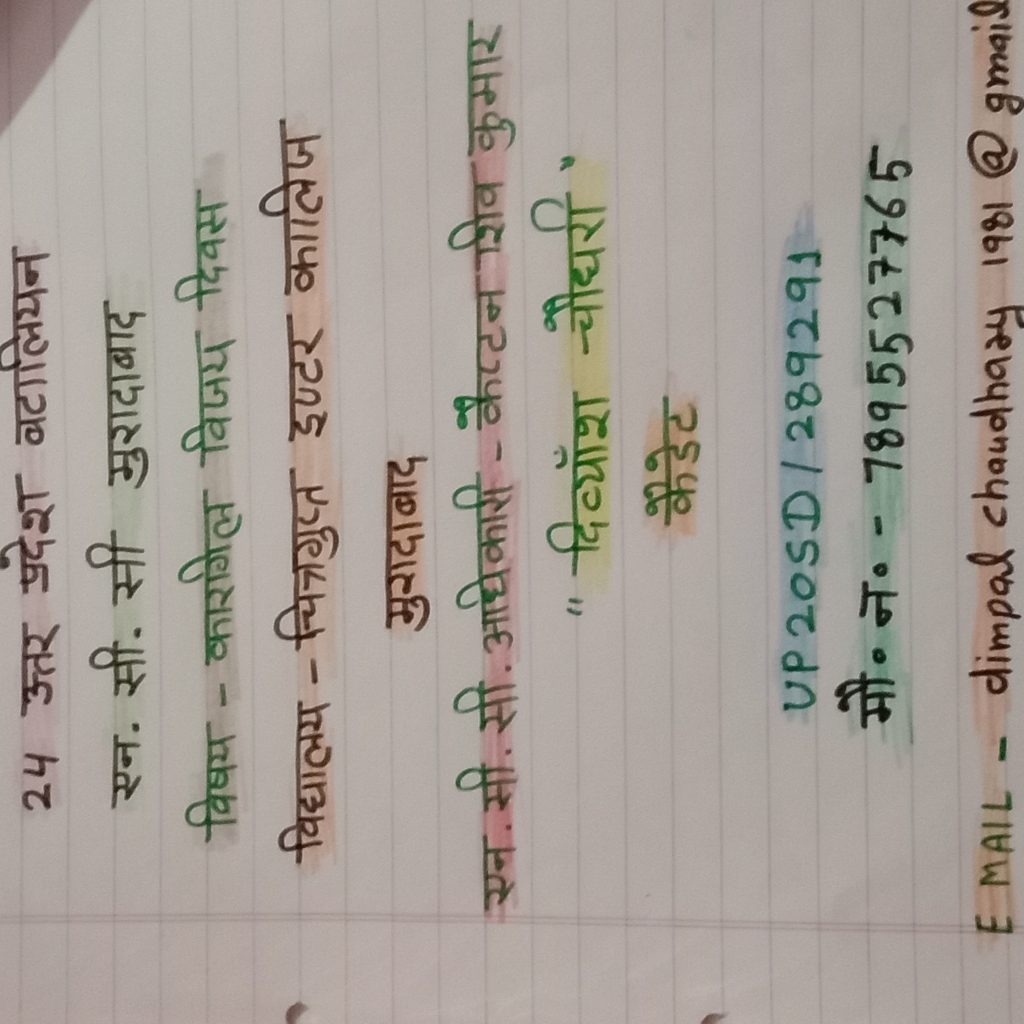 24 उत्तर प्रदेश बटालियन
एन. सी. सी मुरादाबाद
विषय - कारगिल विजय दिवस
विद्यालय - चित्रगुप्त इण्टर कालिज
मुरादाबाद
एन. सी. सी. अधिकारी - कैप्टन शिव कुमार
"दिव्याँश चौधरी"
कैडेट
UP20SD/289291
मो. नं. - 7895527765
E MAIL - dimpal chaudhary 1981 @ gmail